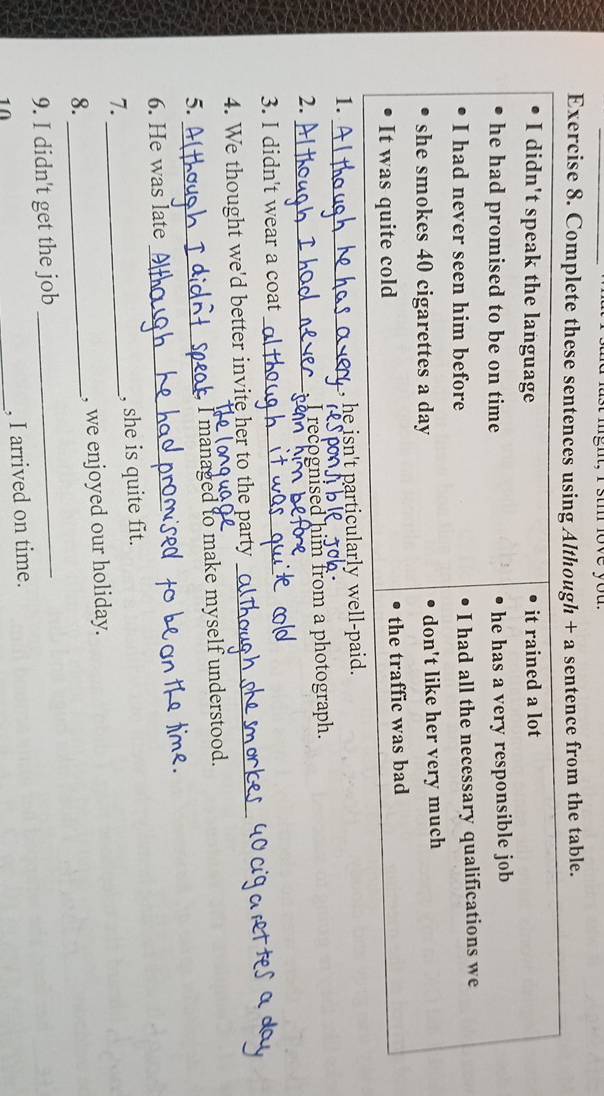 I still love you.
Exercise 8. Complete these sentences using Although + a sentence from the table.
• I didn't speak the language
• he had promised to be on time
• I had never seen him before
• she smokes 40 cigarettes a day
• It was quite cold
• it rained a lot
• he has a very responsible job
• I had all the necessary qualifications we
• don't like her very much
• the traffic was bad
1. Although he has a very, he isn't particularly well-paid.
responsible job.
2. Although I had never, I recognised him from a photograph.
seen him before
3. I didn't wear a coat although it was quite cold
4. We thought we'd better invite her to the party although she smorkes 40 cigarettes a day
5. Although I didn't speak, I managed to make myself understood.
the language
6. He was late Although he had promised to be on the time.
7. , she is quite fit.
8. , we enjoyed our holiday.
9. I didn't get the job
10 , I arrived on time.